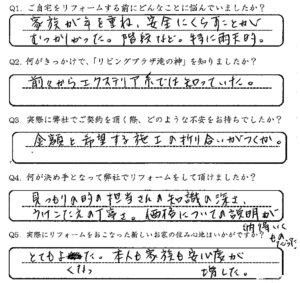 Q1. ご自宅をリフォームする前にどんなことに悩んでいましたか?
家族が年を重ね、安全にくらすことが
むつかしかった。階段など。特に雨天時。
Q2. 何がきっかけで、「リビングプラザ滝の神」を知りましたか?
前々からエクステリア系では知っていた。
Q3. 実際に弊社でご契約を頂く際、どのような不安をお持ちでしたか?
金額と希望する施工の折り合いがつくか。
Q4. 何が決め手となって弊社でリフォームをして頂けましたか?
見つもりの時の担当さんの知識の深さ、
うけこたえの丁寧さ。価格についての説明が
Q5. 実際にリフォームをおこなった新しいお家の住み心地はいかがですか?
とてもよくなった。本人も家族も安心度が
増した。